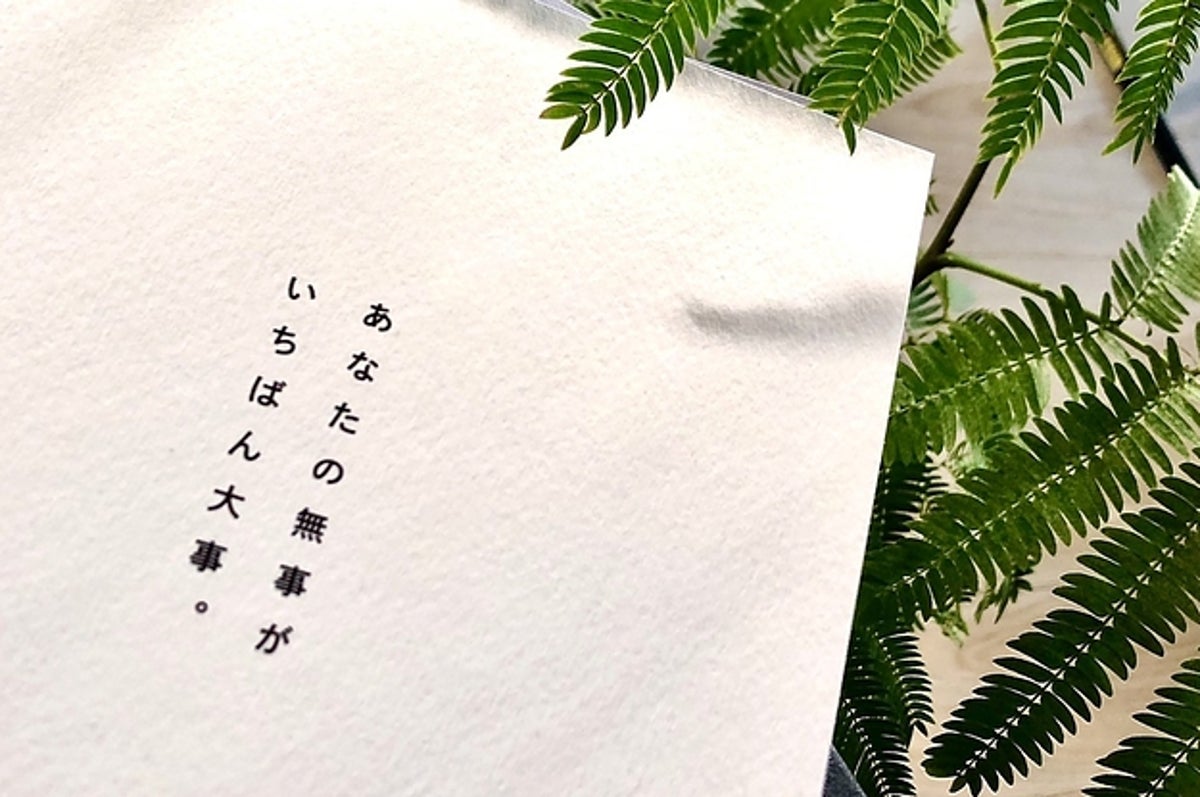 あなたの無事が
いちばん大事。